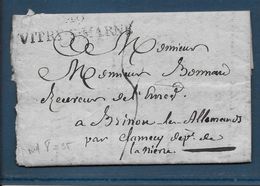 VITRY-S-MARNE
A Monsieur
Monsieur Bonnard
Receveur de l'Enreg.t
a Brinon les Allemands
par Clamecy dep.t de
la Nievre